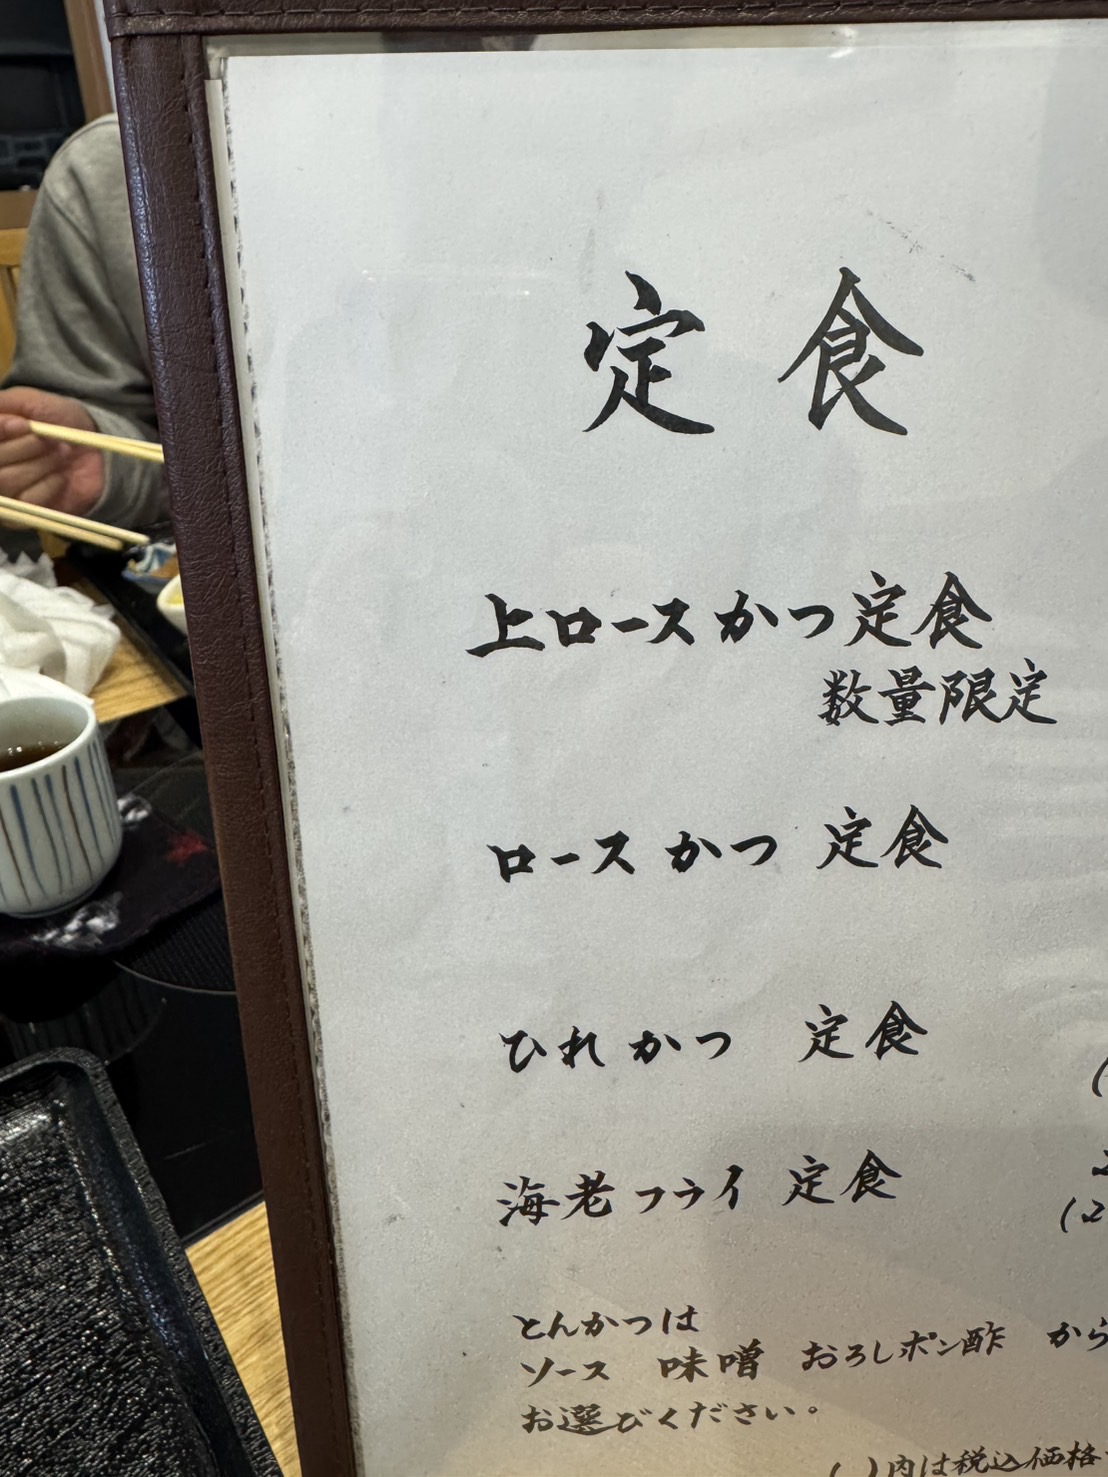 定食
上ロースかつ定食
数量限定
ロースかつ 定食
ひれかつ 定食
海老フライ 定食
(2
とんかつは
ソース 味噌 おろしポン酢 から
お選びください。
( )内は税込価格